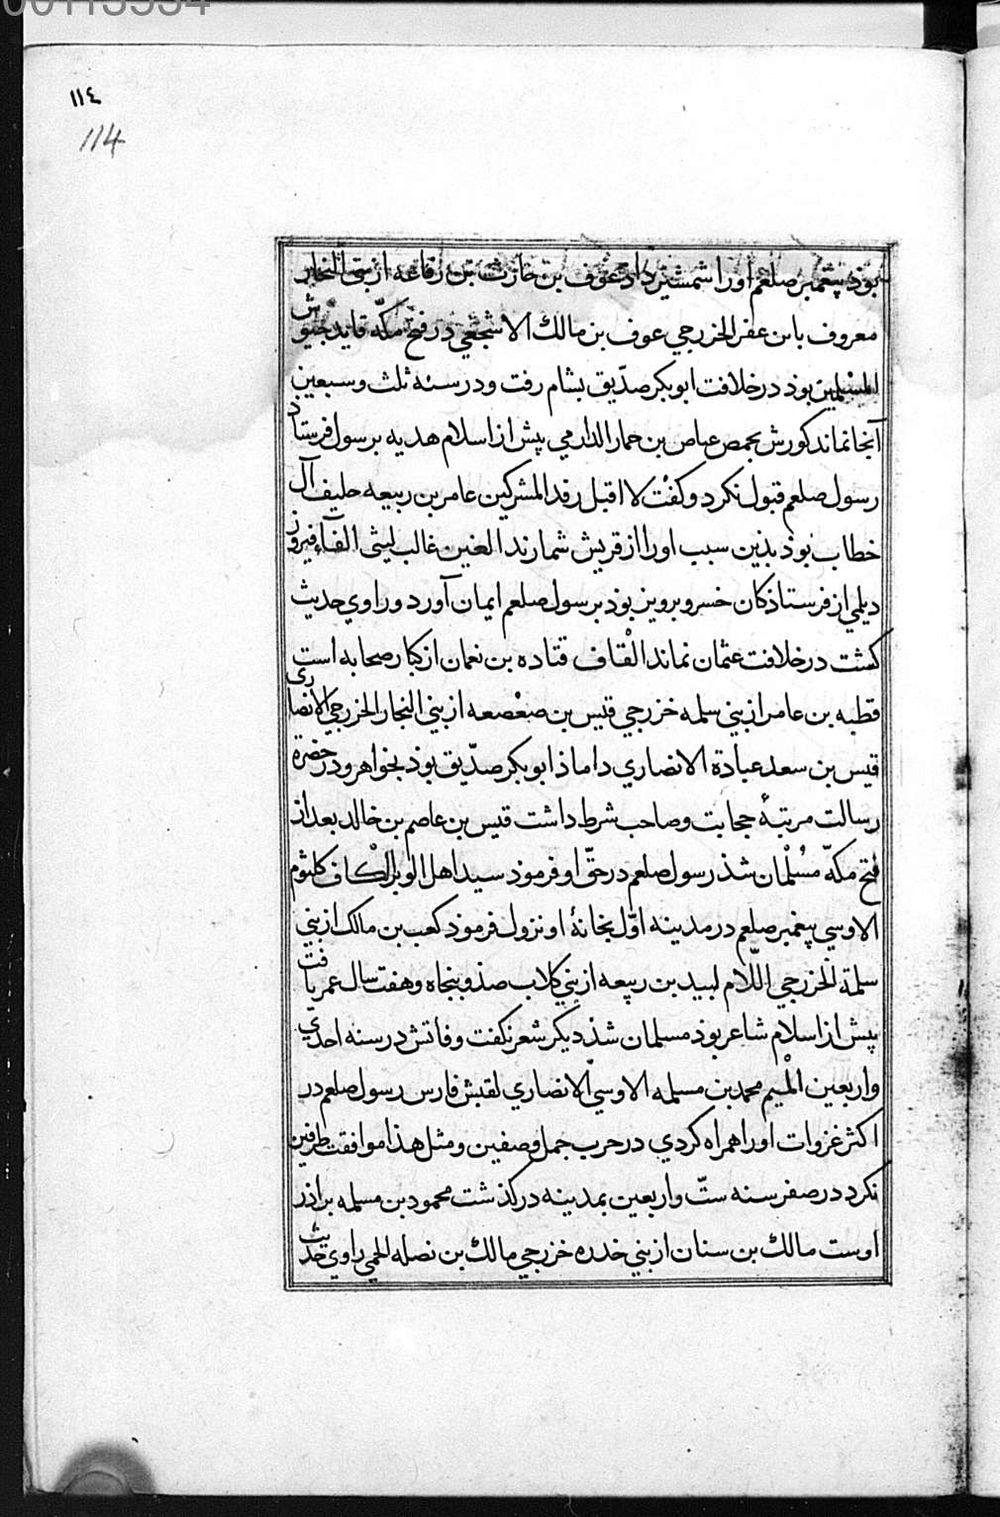 00113334
١١٤
114
بوذ پیغمبر صلعم اورا شمشیر داد عوف بن حارث بن رفاعه از بنی النجار
معروف بابن عفر الخزرجي عوف بن مالك الاشجعي در فتح مكّه قايد جيوش
المسلمين بوذ در خلافت ابوبكر صدّيق بشام رفت و در سنه ثلث و سبعين
آنجا نماند كورش بحمص عياض بن حمار الدارمي پيش از اسلام هديه برسول فرستاذ
رسول صلعم قبول نكرد و كفت لا اقبل رفد المشركين عامر بن ربيعه حليف آل
خطاب بوذ بذين سبب اورا از قريش شمارند الغين غالب ليثى الفآء فيروز
ديلمي از فرستاذكان خسرو پرويز بوذ برسول صلعم ايمان آورد و راوي حديث
كشت در خلافت عثمان نماند القاف قتاده بن نعمان از كبار صحابه است
قطبه بن عامر از بني سلمه خزرجي قيس بن صعْصعه از بني النجار الخزرجي الانصارى
قيس بن سعد عبادة الانصاري داماذ ابوبكر صدّيق بوذ بخواهر و در حضرة
رسالت مرتبهٔ حجابت و صاحب شرط داشت قيس بن عاصم بن خالد بعد از
فتح مكّه مُسلْمان شذ رسول صلعم در حقّ او فرموذ سيد اهل الوبر الكاف كلثوم
الاوسي پيغمبر صلعم در مدينه اوّل بخانهٔ او نزول فرموذ كعب بن مالك از بني
سلمة الخزرجي اللّام لبيد بن ربيعه از بني كلاب صذ و پنجاه و هفت سال عمر يافت
پيش از اسلام شاعر بوذ مسلمان شذ ديكر شعر نكفت وفاتش در سنه احدى
واربعين الميم محمد بن مسلمه الاوسيّ الانصاري لقبش فارس رسول صلعم در
اكثر غزوات اورا همراه كردي در حرب جمل و صفين و مثل هذا موافقت طرفين
نكرد در صفر سنه ستّ واربعين بمدينه دركذشت محمود بن مسلمه براذر
اوست مالك بن سنان از بني خدره خزرجي مالك بن نصله الجمي راوي حديث